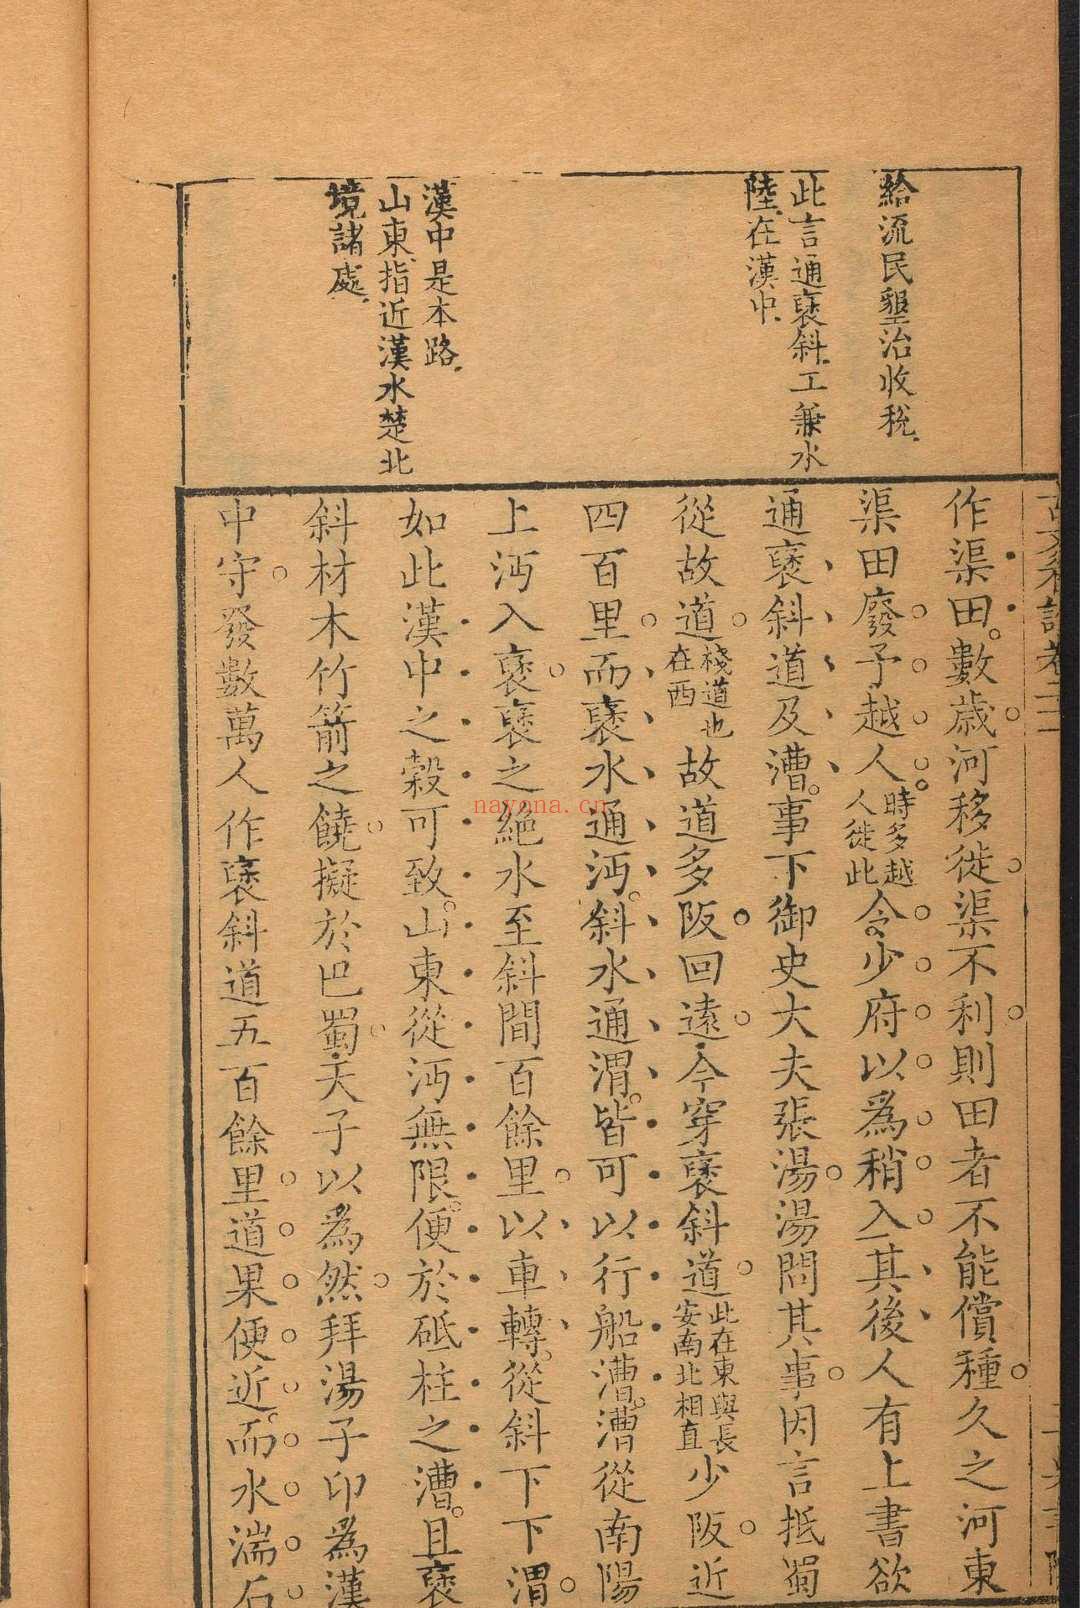 給流民墾治收稅
此言通褒斜工兼水
陸在漢中
漢中是本路
山東指近漢水楚北
境諸處
作渠田數歲河移徙渠不利則田者不能償種久之河東
渠田廢予越人時多越人徙此令少府以爲稍入其後人有上書欲
通褒斜道及漕事下御史大夫張湯湯問其事因言抵蜀
從故道棧道也在西故道多阪回遠今穿褒斜道此在東與長安南北相直少阪近
四百里而褒水通沔斜水通渭皆可以行船漕漕從南陽
上沔入褒褒之絕水至斜間百餘里以車轉從斜下下渭
如此漢中之穀可致山東從沔無限便於砥柱之漕且褒
斜材木竹箭之饒擬於巴蜀天子以爲然拜湯子卬爲漢
中守發數萬人作褒斜道五百餘里道果便近而水湍石
nayona.cn